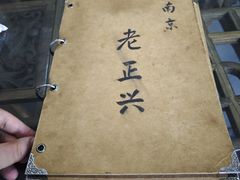 南京
老正兴